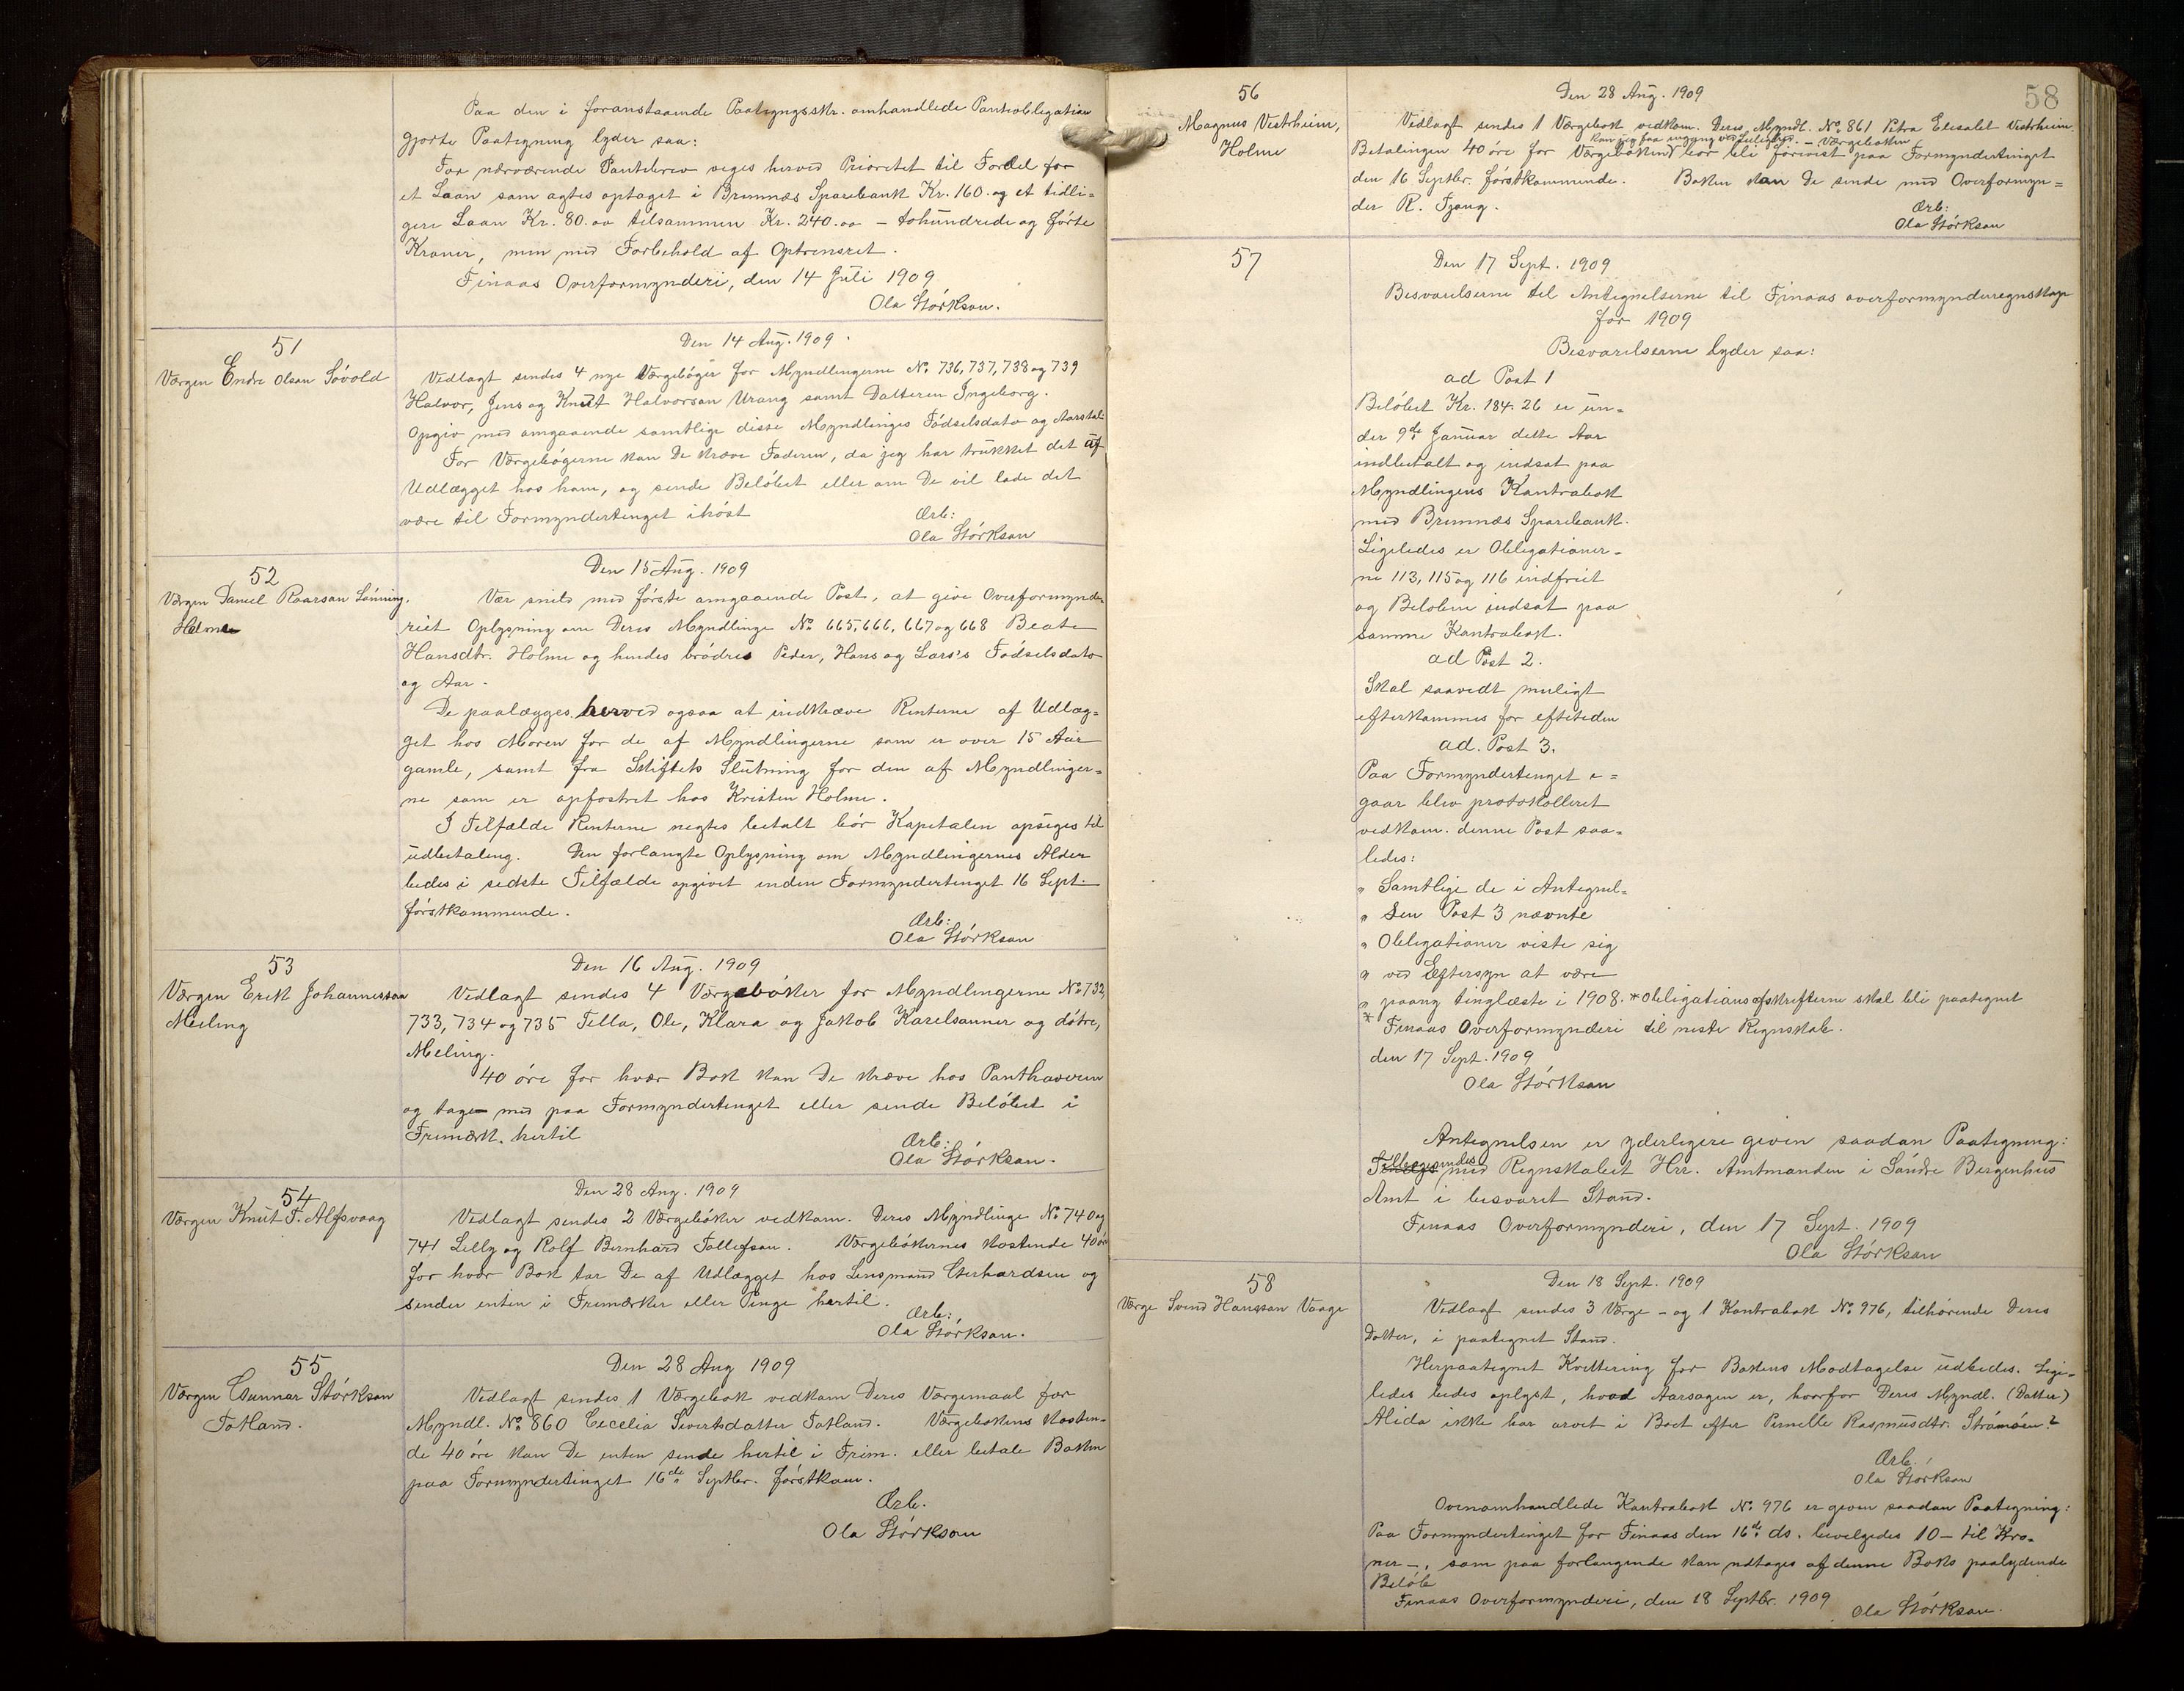 Paa den i foranstaaende Paategngsskr. omhandlede Pantobligation
gjorte Paategning lyder saa:
For nærværende Pantebrev viges herved Prioritet til Fordel for
et Laan som agtes optaget i Bremnæs Sparebank Kr. 160. og et tidli-
gere Laan Kr. 80.00 tilsammen Kr. 240.00 – tohundrede og førte
Kroner, men med Forbehold af Optrinsret.
Finaas Overformynderi, den 14 Juli 1909
Ola Størkson.
51
Værgen Endre Olson Søvold
Den 14 Aug. 1909.
Vedlagt sendes 4 nye Værgebøger for Myndlingerne No. 736, 737, 738 og 739
Halvor, Jens og Knut Halvorson Urang samt Datteren Ingeborg.
Opgiv med omgaaende samtlige disse Myndlinges Fødselsdato og Aarstal.
For Værgebøgerne kan De kræve Faderen, da jeg har trukket det af
Udlægget hos ham, og sende Beløbet eller om De vil lade det
være til Formyndertinget ihøst
Ærb:
Ola Størkson
52
Værgen Daniel Roarson Lønning,
Holme
Den 15 Aug. 1909
Vær snild med første omgaaende Post, at give Overformynde-
riet Oplysning om Deres Myndlinge No. 665, 666, 667 og 668 Beate
Hansdtr. Holme og hendes brødres Peder, Hans og Lars's Fødselsdato
og Aar.
De paalægges herved ogsaa at indkræve Renterne af Udlæg-
get hos Moren for de af Myndlingerne som er over 15 Aar
gamle, samt fra Skiftets Slutning for den af Myndlinger-
ne som er opfostret hos Kristen Holme.
I Tilfælde Renterne negtes betalt bør Kapitalen opsiges til
udbetaling. Den forlangte Oplysning om Myndlingernes Alder
bedes i sidste Tilfælde opgivet inden Formyndertinget 16 Sept.
førstkommende.
Ærb:
Ola Størkson
53
Værgen Erik Johannesson
Meling
Den 16 Aug. 1909
Vedlagt sendes 4 Værgebøker for Myndlingerne No. 732,
733, 734 og 735 Tella, Ole, Klara og Jakob Karelsønner og døtre,
Meling.
40 øre for hver Bok kan De kræve hos Panthaveren
og tage med paa Formyndertinget eller sende Beløbet i
Frimærk. hertil
Ærb:
Ola Størkson.
54
Værgen Knut T. Alfsvaag
Den 28 Aug. 1909
Vedlagt sendes 2 Værgebøker vedkom. Deres Myndlinge No. 740 og
741 Lilly og Rolf Bernhard Tollefson. Værgebøkernes kostende 40 øre
for hver Bok tar De af Udlægget hos Lensmand Gerhardsen og
sender enten i Frimærker eller Penge hertil.
Ærb:
Ola Størkson.
55
Værgen Gunnar Størkson
Totland.
Den 28 Aug 1909
Vedlagt sendes 1 Værgebok vedkom Deres Værgemaal for
Myndl. No. 860 Cecelia Sivertsdatter Totland. Værgebokens kosten-
de 40 øre kan De enten sende hertil i Frim. eller betale Boken
paa Formyndertinget 16de Septbr. førstkom.
Ærb.
Ola Størkson
58
56
Magnus Vestrheim,
Holme
Den 28 Aug. 1909
Vedlagt sendes 1 Værgebok vedkom. Deres Myndl. No. 861 Petra Elesabet Vestrheim.
kan jeg faa ved Leilighed. – Værgeboken
Betalingen 40 øre for Værgeboken bør bli forevist paa Formyndertinget
den 16 Septbr. førstkommende. Boken kan De sende med Overformyn-
der R. Tjong.
Ærb:
Ola Størkson
57
Den 17 Sept. 1909
Besvarelserne til Antegnelserne til Finaas overformynderregnskap
for 1909
Besvarelserne lyder saa:
ad Post 1
Beløbet Kr. 184.26 er un-
der 9de Januar dette Aar
indbetalt og indsat paa
Myndlingens Kontrabok
med Bremnæs Sparebank.
Ligeledes er Obligationer-
ne 113, 115 og 116 indfriet
og Beløbene indsat paa
samme Kontrabok.
ad Post 2.
Skal saavidt muligt
efterkommes for eftertiden
ad. Post 3.
Paa Formyndertinget i-
gaar blev protokolleret
vedkom. denne Post saa-
ledes:
" Samtlige de i Antegnel-
" sen Post 3 nævnte
" Obligationer viste sig
" ved Eftersyn at være
" paany tinglæste i 1908. * Obligationsafskrifterne skal bli paategnet
* Finaas Overformynderi til neste Regnskab.
den 17 Sept. 1909
Ola Størkson
Antegnelsen er yderligere given saadan Paategning:
Tilbagesendes med Regnskabet Hrr. Amtmanden i Søndre Bergenhus
Amt i besvaret Stand.
Finaas Overformynderi, den 17 Sept. 1909
Ola Størkson
58
Værge Svend Hansson Vaage
Den 18 Sept. 1909
Vedlagt sendes 3 Værge- og 1 Kontrabok No. 976, tilhørende Deres
Datter, i paategnet Stand.
Herpaategnet Kvittering for Bokens Modtagelse udbedes. Lige-
ledes bedes oplyst, hvad Aarsagen er, hvorfor Deres Myndl. (Datter)
Alida ikke har arvet i Boet efter Pernelle Rasmusdtr. Strømøen?
Ærb.
Ola Størkson
Ovenomhandlede Kontrabok No. 976 er given saadan Paategning:
Paa Formyndertinget for Finaas den 16de ds. bevelgedes 10 – ti Kro-
ner –, som paa forlangende kan udtages af denne Boks paalydende
Beløb
Finaas Overformynderi, den 18 Septbr. 1909
Ola Størkson.